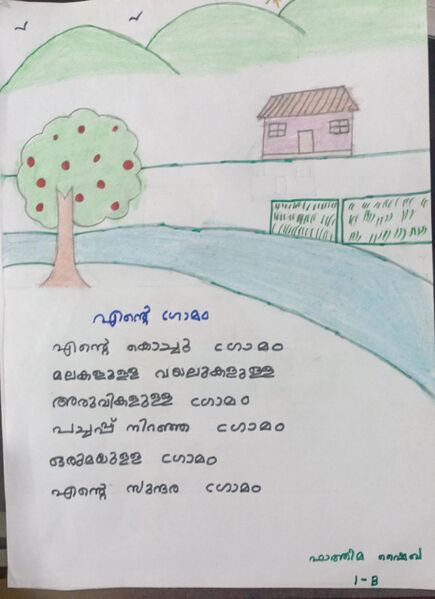 എന്റെ ഗ്രാമം
എന്റെ കൊച്ചു ഗ്രാമം
മലകളുള്ള വയലുകളുള്ള
അരുവികളുള്ള ഗ്രാമം
പച്ചപ്പ് നിറഞ്ഞ ഗ്രാമം
ഒരുമയുള്ള ഗ്രാമം
എന്റെ സുന്ദര ഗ്രാമം
ഫാത്തിമ ഷൈഖ
1-B